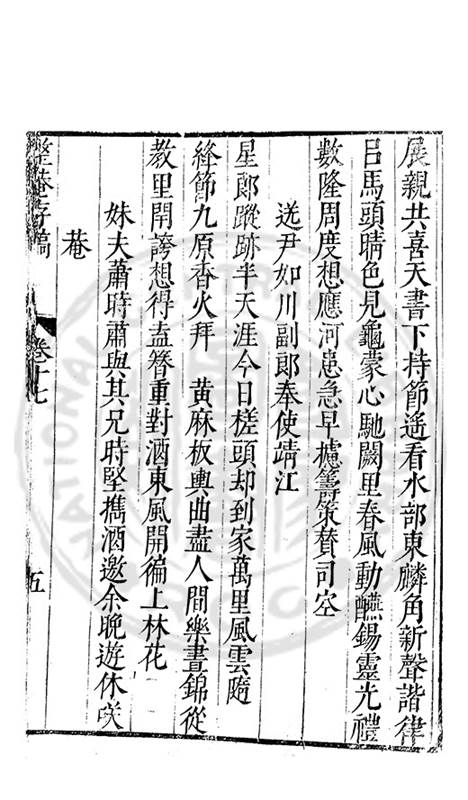 展親共喜天書下持節遙看水部東麟角新聲諧律
呂馬頭晴色見龜蒙心馳闕里春風動醼錫靈光禮
數隆周度想應河患急早攄籌策賛司空
送尹如川副郎奉使靖江
星郎蹤跡半天涯今日槎頭却到家萬里風雲隨
絳節九原香火拜 黄麻板輿曲盡人間樂晝錦從
教里閈誇想得盍簪重對酒東風開徧上林花
妹夫蕭時肅與其兄時堅携酒邀余晚遊休咲
菴
整菴存稿 卷十七 五